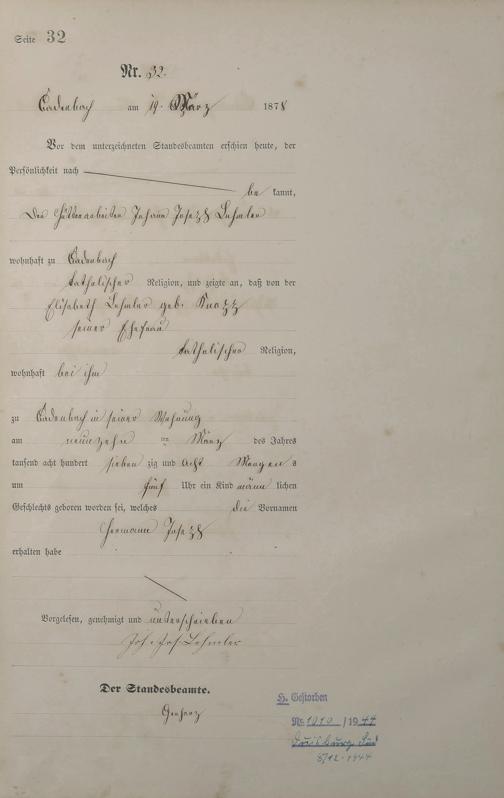 Seite 32
Nr. 32.
Cadenbach am 19. März 1878
Vor dem unterzeichneten Standesbeamten erschien heute, der
Persönlichkeit nach
be kannt,
Der Hüttenarbeiter Johann Josef Lehmler
wohnhaft zu Cadenbach
katholischer Religion, und zeigte an, daß von der
Elisabeth Lehmler geb.
seiner Ehefrau
katholischer Religion,
wohnhaft bei ihm
zu Cadenbach in seiner Wohnung
am neunzehn ten März des Jahres
tausend acht hundert sieben zig und acht Morgens
um fünf Uhr ein Kind männ lichen
Geschlechts geboren worden sei, welches die Vornamen
Hermann Josef
erhalten habe
Vorgelesen, genehmigt und unterschrieben
Joh. Jos. Lehmler
Der Standesbeamte.
H. Gestorben
Nr. 1010 / 1944
Duisburg Süd
5/12.1944